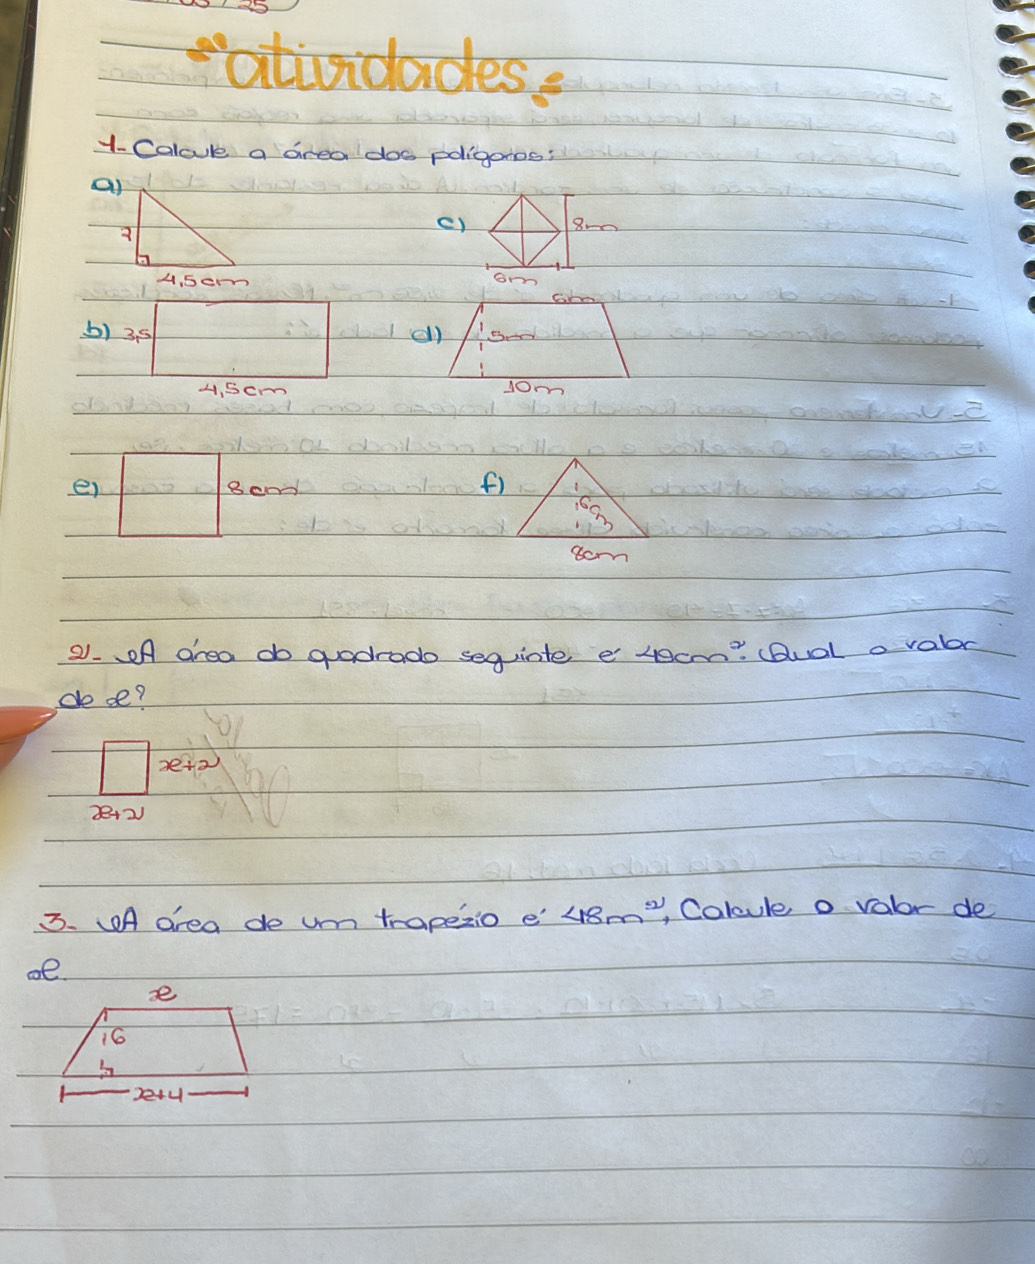 atividades
1- Calcule a área dos polígonos:
a)
4,5cm
c)
8m
6m
b) 3,5
4,5cm
d)
6m
5m
10m
e)
8cm
f)
6cm
8cm
2- A área do quadrado seguinte é 49cm². Qual o valor
de x?
x+2
x+2
3- A área de um trapézio é 48m², Calcule o valor de
x
x
6
x+4